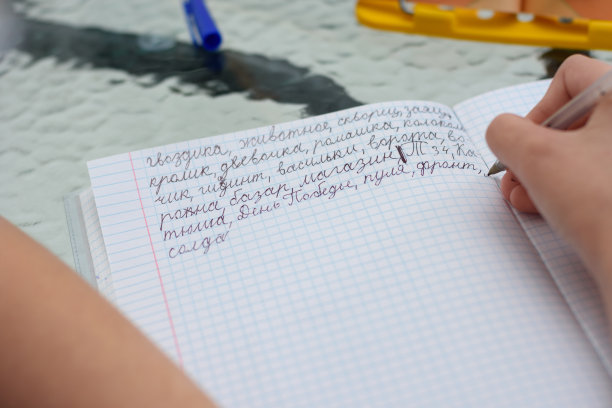 гвоздика, животное, сквориц, заяц,
кролик, двевочка, ромашка, колокол
чик, васильки, ворота, во
базар, магазин, Т 34, Ка
тюша, День Победы, пуля, франт,
солда